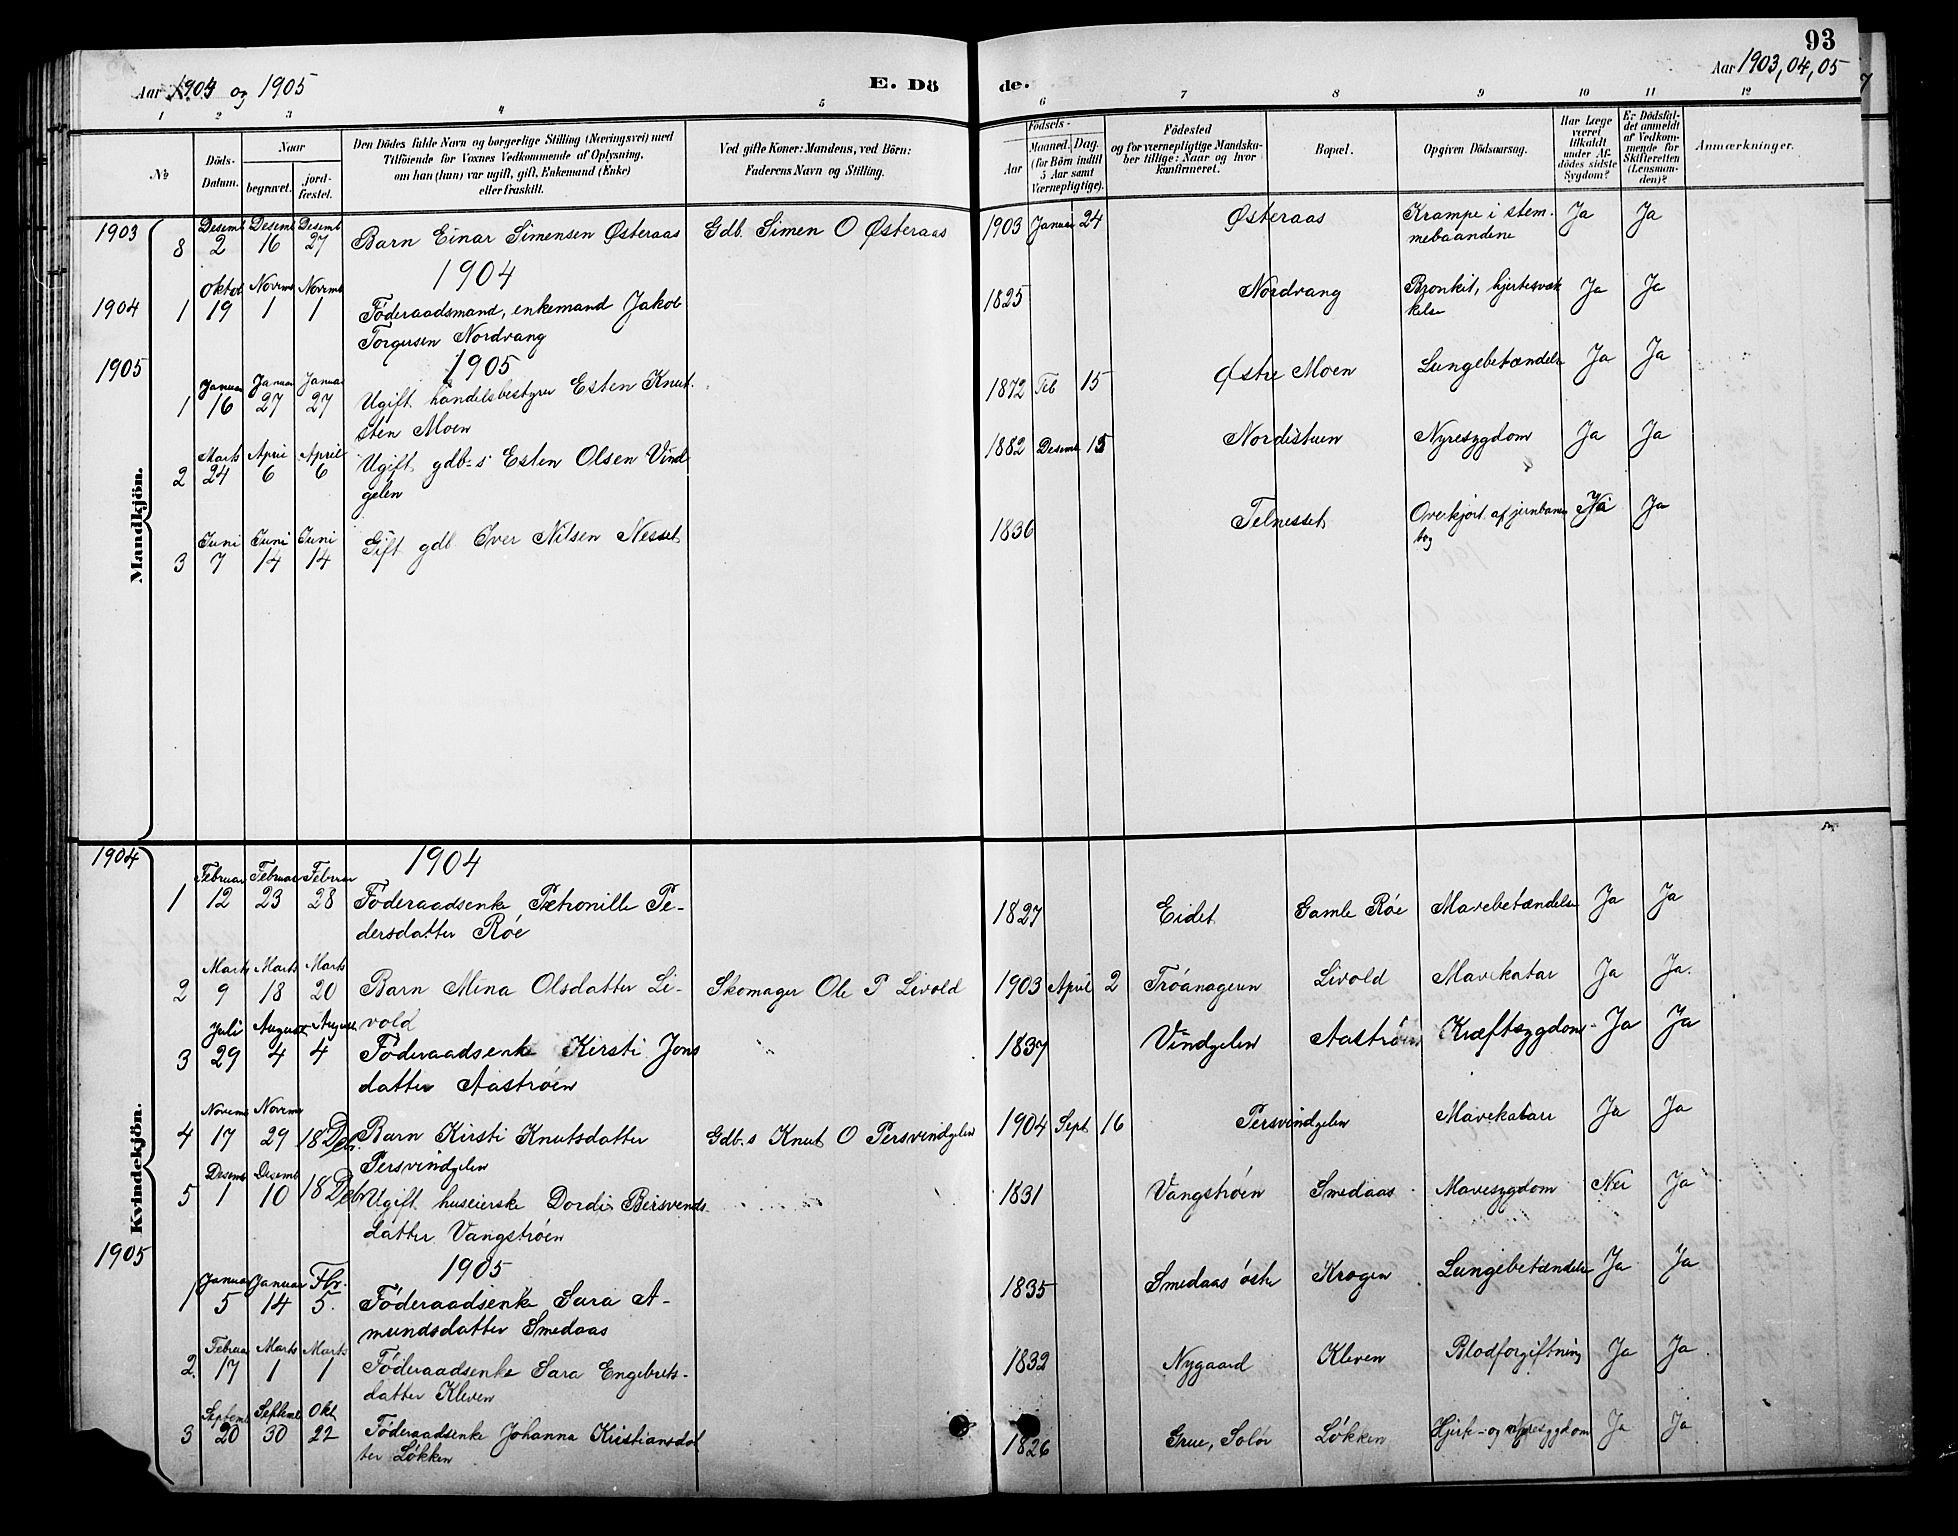 93
Aar 1904 og 1905
E. Dö
de.
Aar 1903, 04, 05
1 2 3 4 5 6 7 8 9 10 11 12
No
Döds-Datum.
Naar
begravet.
jord-fæstet.
Den Dödes fulde Navn og borgerlige Stilling (Næringsvei) med
Tilföiende for Voxnes Vedkommende af Oplysning,
om han (hun) var ugift, gift, Enkemand (Enke)
eller fraskilt.
Ved gifte Koner: Mandens, ved Börn:
Faderens Navn og Stilling.
Födsels-
Aar
Maaned. Dag.
(for Börn indtil
5 Aar samt
Værnepligtige).
Födested
og for værnepligtige Mandska-
ber tillige: Naar og hvor
konfirmeret.
Bopæl.
Opgiven Dödsaarsag.
Har Læge
været
tilkaldt
under Af-
dödes sidste
Sygdom?
Er Dödsfal-
det anmeldt
af Vedkom-
mende for
Skifteretten
(Lensman-
den)?
Anmærkninger.
Mandkjön.
1903
8 Desemb 2 Desemb 16 Desemb 27 Barn Einar Simensen Østeraas Gdb. Simen O Østeraas 1903 Januar 24 Østeraas Krampe i stem-
mebaandene Ja Ja
1904
1904
1 Oktob 19 Novemb 1 Novemb 1 Föderaadsmand, enkemand Jakob
Torgersen Nordvang 1825 Nordvang Bronkit, hjertesvæk
kelse Ja Ja
1905
1905
1 Januar 16 Januar 27 Januar 27 Ugift handelsbestyrer Esten Knut-
sten Moen 1872 Feb 15 Østre Moen Lungebetændelse Ja Ja
2 Marts 24 April 6 April 6 Ugift gdb-s Esten Olsen Vind
gelen 1882 Desemb 15 Nordistuen Nyresygdom Ja Ja
3 Juni 7 Juni 14 Juni 14 Gift gdb Iver Nilsen Nesset 1830 Telnesset Overkjört af jernbane
tog Ja
Kvindekjön.
1904
1904
1 Februar 12 Februar 23 Februar 28 Föderaadsenke Petronille Pe-
dersdatter Röe 1827 Eidet Gamle Röe Mavebetændelse Ja Ja
2 Marts 9 Marts 18 Marts 20 Barn Mina Olsdatter Li-
vold Skomager Ole P Livold 1903 April 2 Tröanageren Livold Mavekatar Ja Ja.
3 Juli 29 August 4 August 4 Föderaadsenke Kirsti Jons
datter Aaströen 1837 Vindgelen Aaströen Kræftsygdom Ja Ja
4 Novemb 17 Novemb 29 18 Debr. Barn Kirsti Knutsdatter
Persvindgelen Gdb.s Knut O Persvindgelen 1904 Sept 16 Persvindgelen Mavekatar Ja Ja
5 Desemb 1 Desemb 10 18 Debr Ugift huseierske Dordi Bersvends-
datter Vangströen 1831 Vangströen Smedaas Mavesygdom Nei Ja
1905
1905
1 Januar 5 Januar 14 Fbr. 5. Föderaadsenke Sara A-
mundsdatter Smedaas 1835 Smedaas östre Krogen Lungebetændelse Ja Ja
2. Februar 17 Marts 1 Marts 1 Föderaadsenke Sara Engebrets-
datter Kleven 1832 Nygaard Kleven Blodforgiftning Ja Ja
3 Septemb 20 Septemb 30 Okt 22 Föderaadsenke Johanna Kristiansdat
ter Løkken 1826 Grue, Solör Løkken Hjerte- og nyresygdom Ja Ja